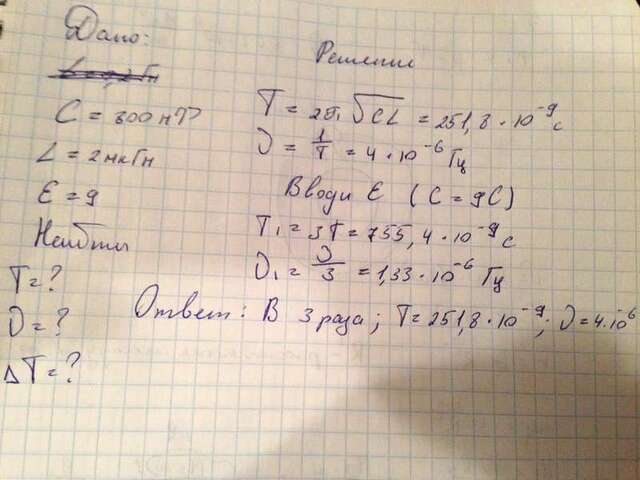 Дано:
Решение
C = 800 пФ
L = 2 мкГн
ε = 9
Найти
T = ?
ν = ?
ΔT = ?
T = 2π √CL = 251,8 · 10⁻⁹ с
ν = 1/T = 4 · 10⁻⁶ Гц
Вводи ε (C = 9C)
T₁ = 3T = 755,4 · 10⁻⁹ с
ν₁ = ν/3 = 1,33 · 10⁻⁶ Гц
Ответ: В 3 раза; T = 251,8 · 10⁻⁹; ν = 4·10⁻⁶